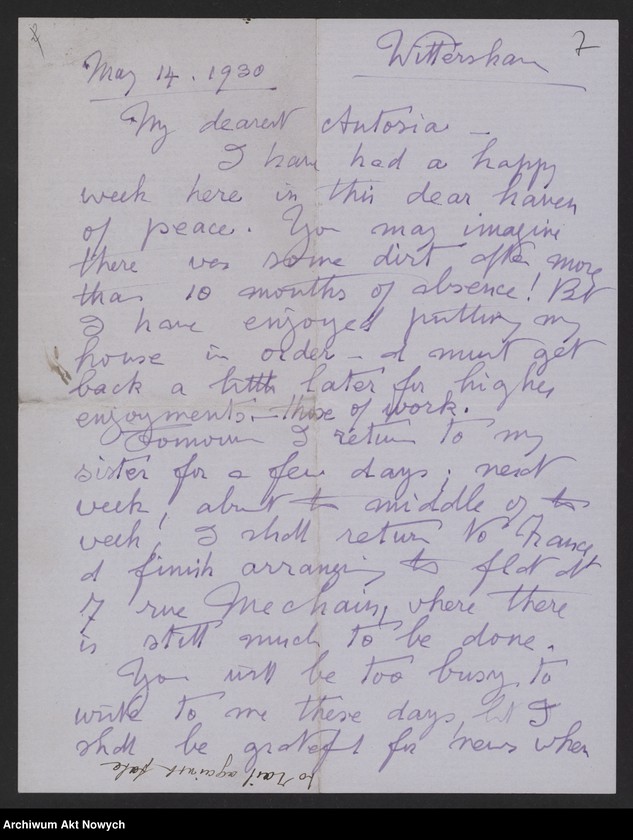 7
May 14. 1930
Wittersham
My dearest Antosia —
I have had a happy
week here in this dear haven
of peace. You may imagine
there was some dirt after more
than 10 months of absence! But
I have enjoyed putting my
house in order — & must get
back a little later for higher
enjoyments: those of work.
Tomorrow I return to my
sister for a few days; next
week, about the middle of the
week, I shall return to France
& finish arranging the flat at
7 rue Méchain, where there
is still much to be done.
You will be too busy to
write to me these days, but I
shall be grateful for news when
to rail against fate
Archiwum Akt Nowych